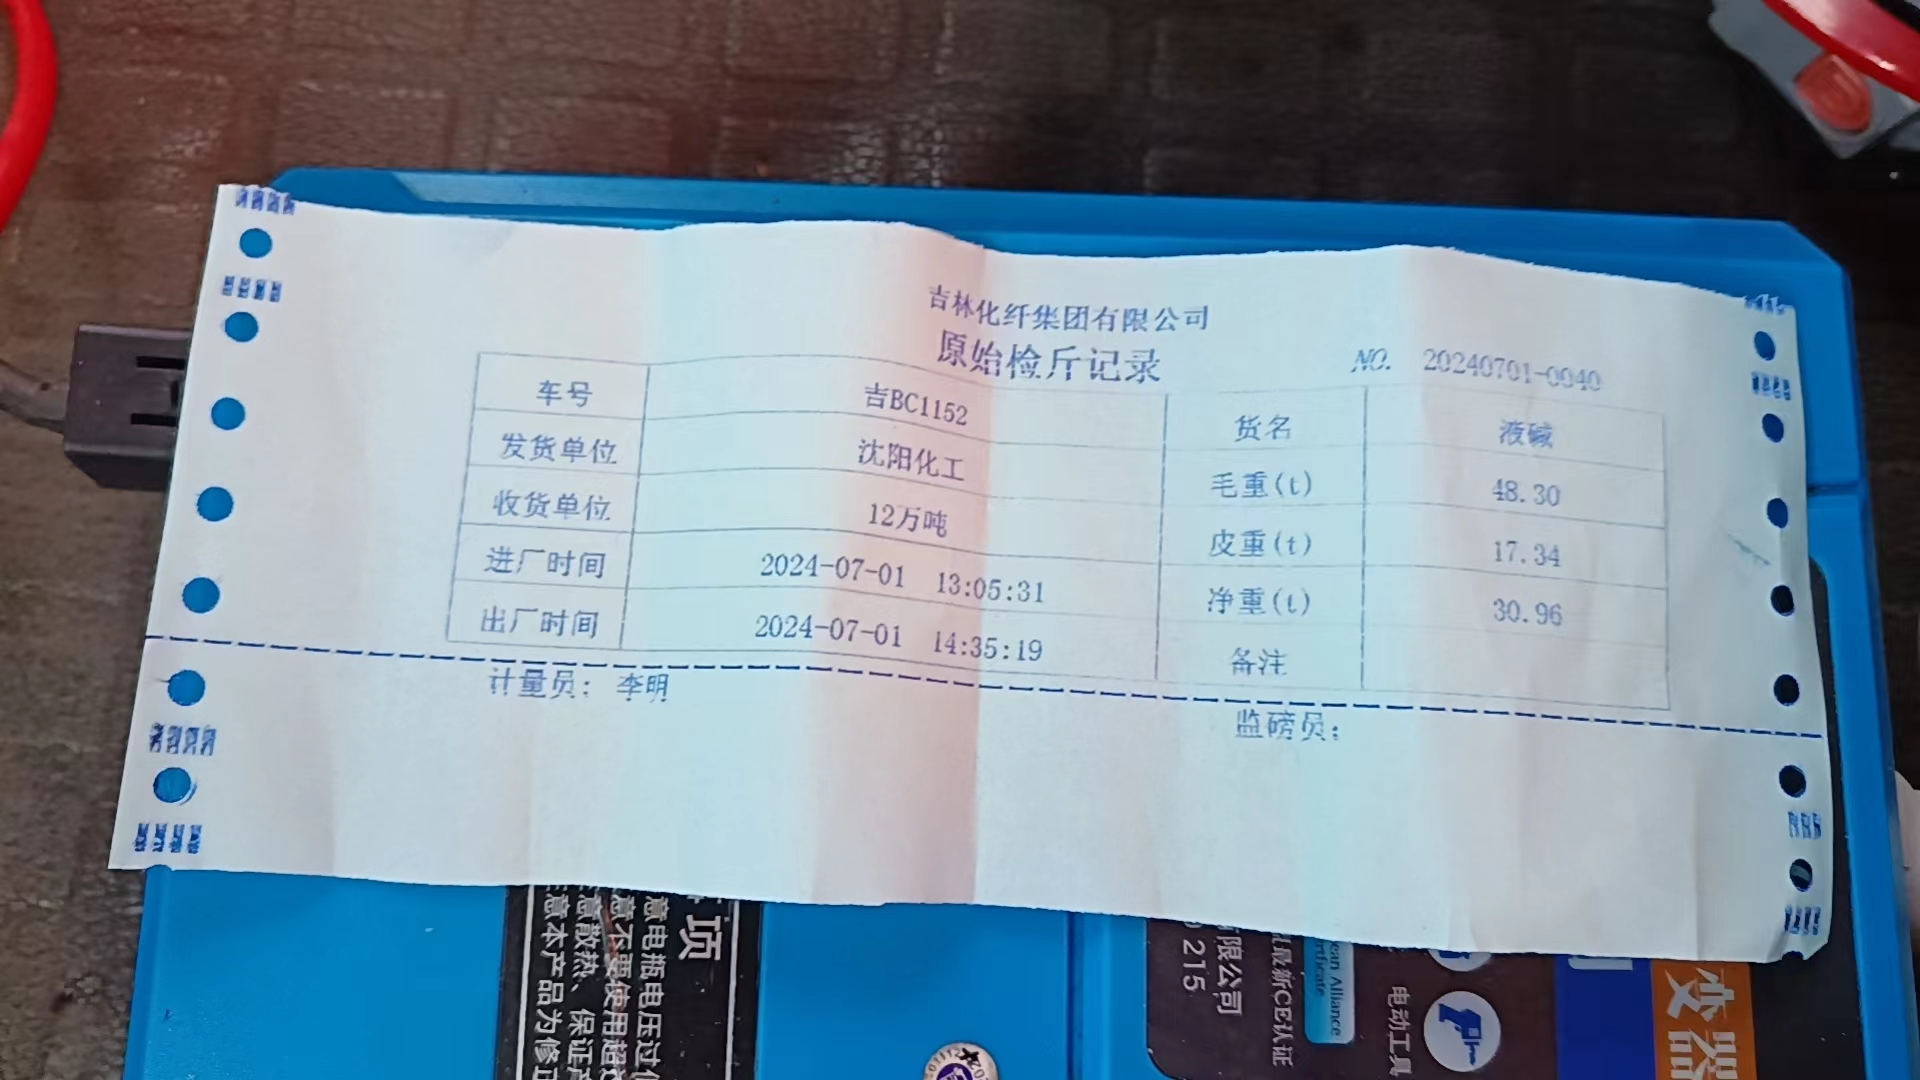 吉林化纤集团有限公司
原始检斤记录
NO. 20240701-0040
车号 吉BC1152 货名 液碱
发货单位 沈阳化工 毛重(t) 48.30
收货单位 12万吨 皮重(t) 17.34
进厂时间 2024-07-01 13:05:31 净重(t) 30.96
出厂时间 2024-07-01 14:35:19 备注
计量员: 李明 监磅员:
项
意电瓶电压过
意不要使用超
意散热、保证产
意本产品为修正
限公司
215
最新CE认证
ean Alliance
电动工具
变
器